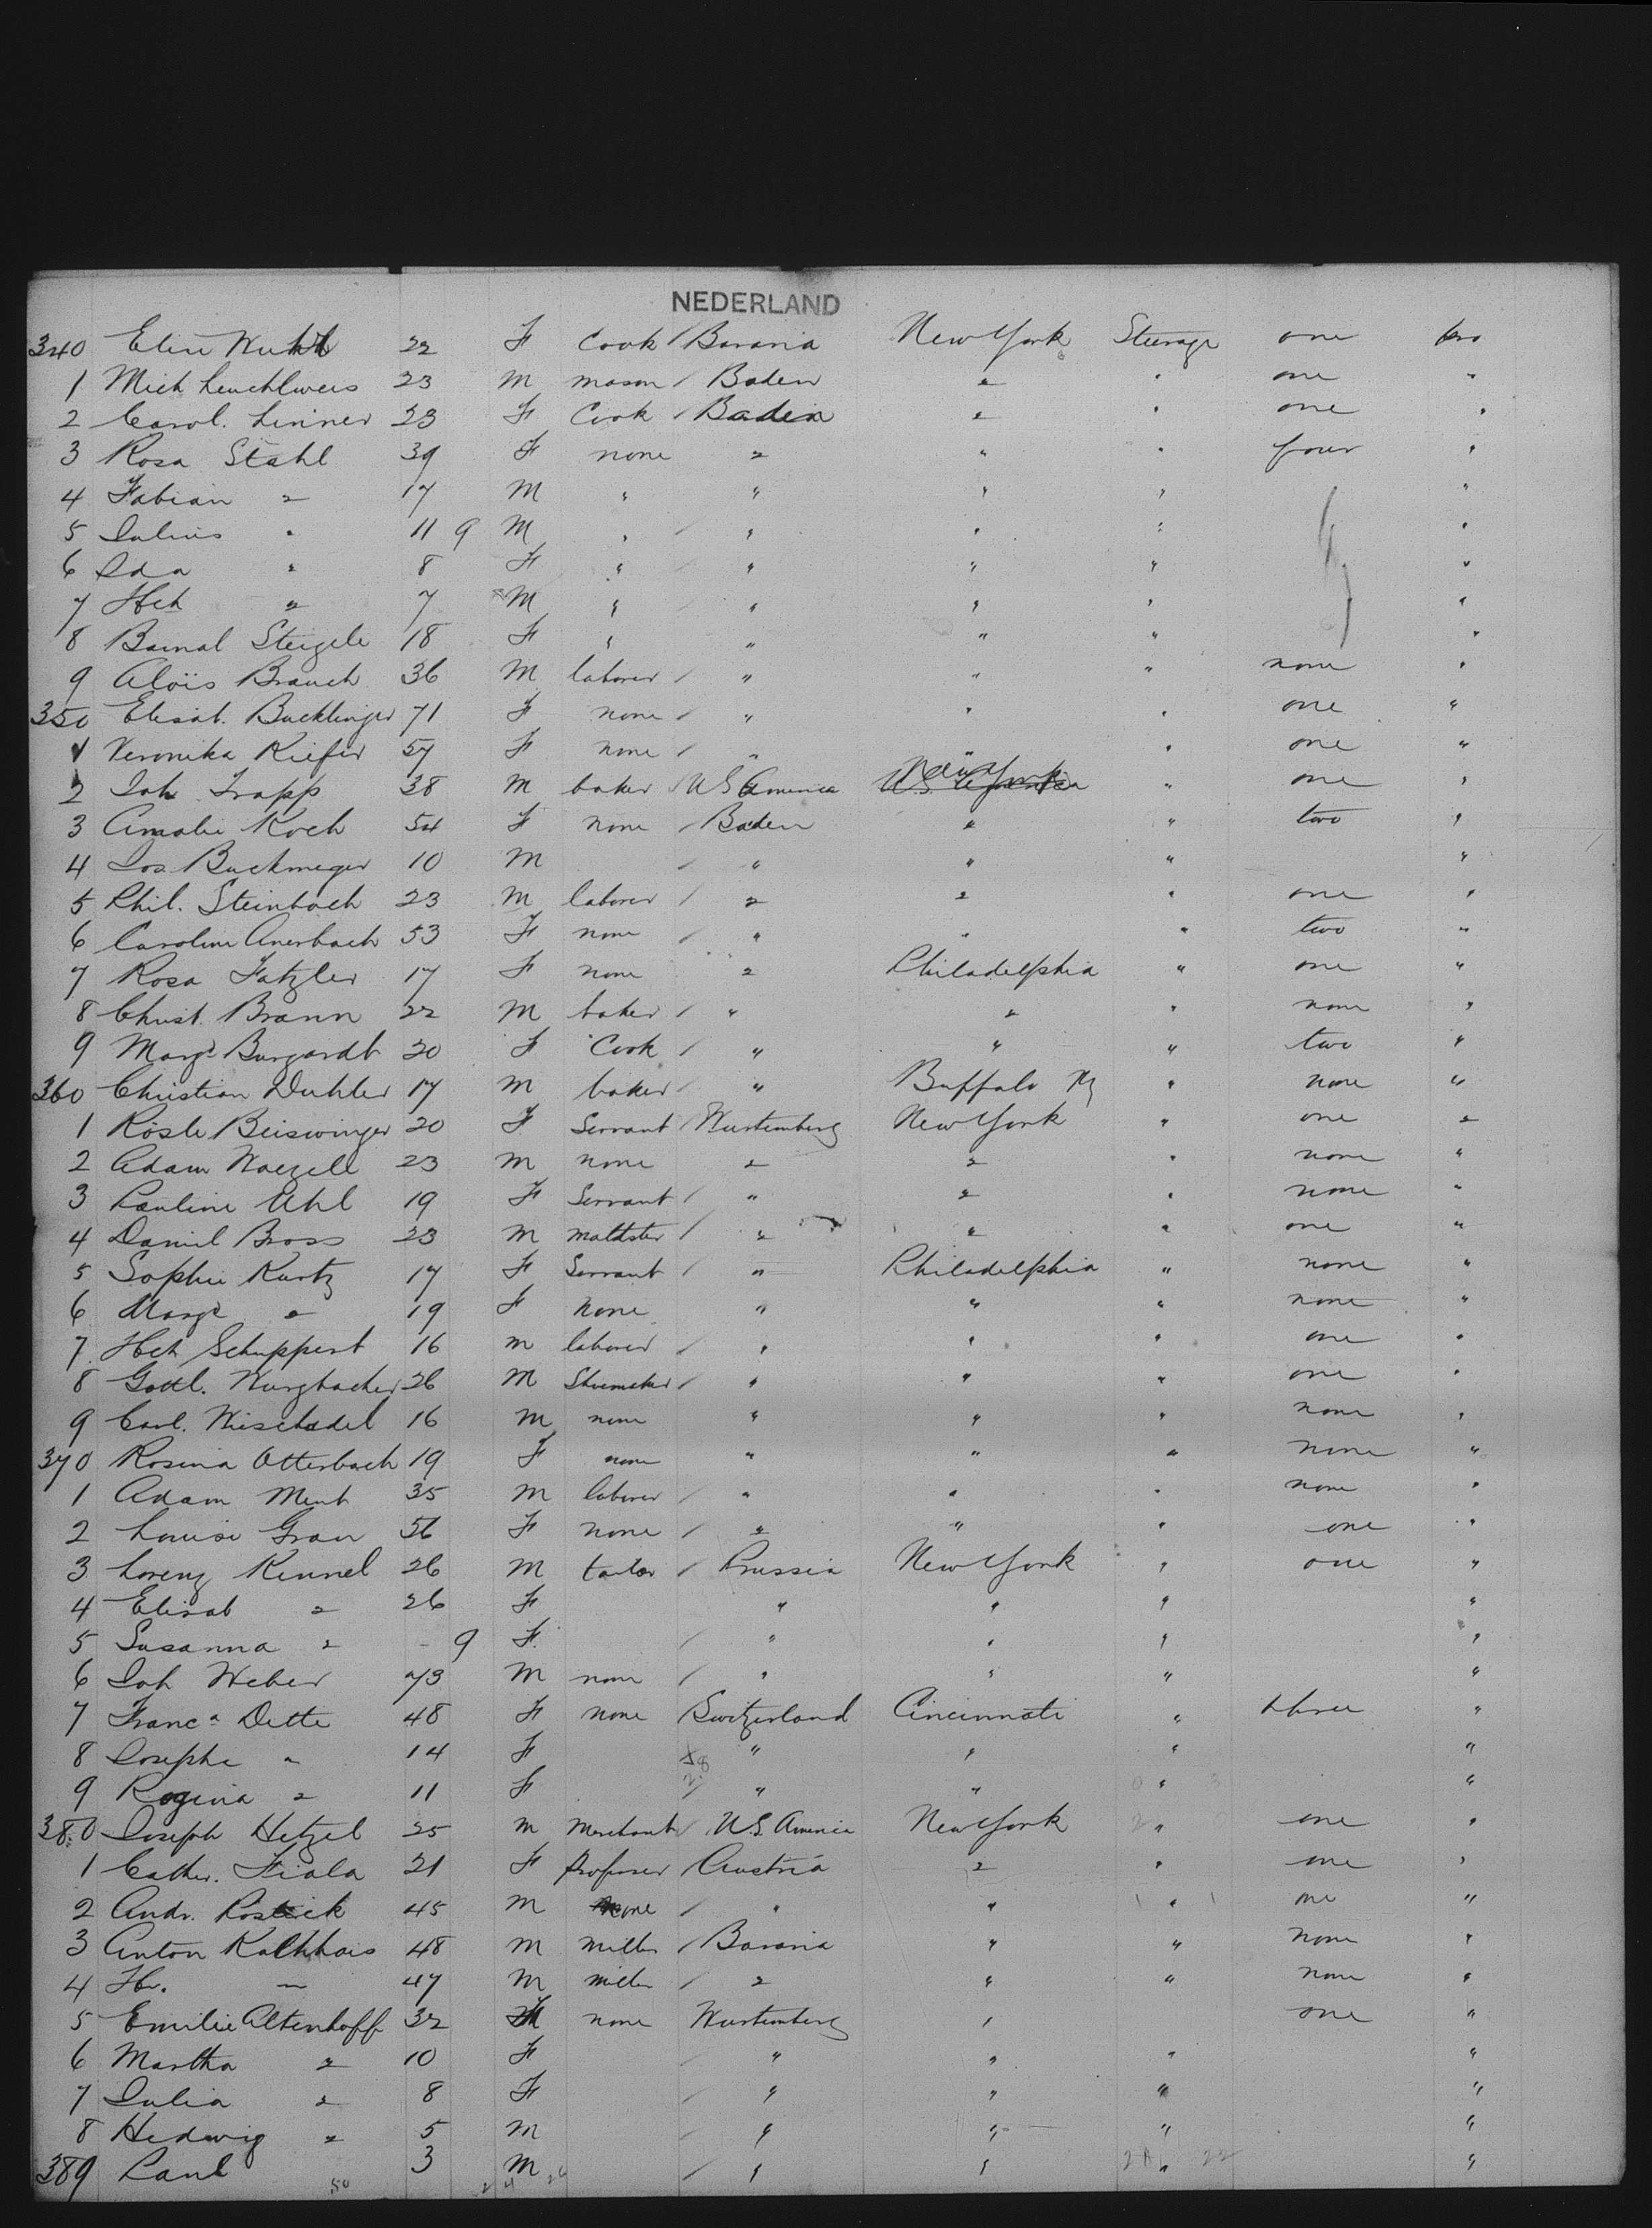 NEDERLAND
340 Elise 22 F Cook / Bavaria New York Steerage one
1 Mich 23 M mason / Baden " " one "
2 Carol. Linner 23 F Cook / Baden " " one "
3 Rosa Stahl 39 F none " " " four "
4 Fabian " 17 M " " " " "
5 Julius " 11 9 M " / " " " "
6 Ida " 8 F " / " " " "
7 Hch " 7 M " / " " " "
8 Steigele 18 F " " " " "
9 Aloïs Brauch 36 M laborer / " " " none "
350 Elisab. Bucklinger 71 F none / " " " one "
1 Veronika Kiefer 57 F none / " " " one "
2 Joh Trapp 38 M baker / U S America New York " one "
3 Amalie Koch 54 F none / Baden " " two "
4 Jos. Buckmeyer 10 M / " " " "
5 Phil. Steinbach 23 M laborer / " " " one "
6 Caroline Auerbach 53 F none / " " " two "
7 Rosa Fatzler 17 F none " Philadelphia " one "
8 Christ. Braun 22 M baker / " " " none "
9 Margt Burgardt 20 F Cook / " " " two "
360 Christian 17 M baker / " Buffalo Ny " none "
1 Rösle Beiswinger 20 F Servant / Wurtemberg New York " one "
2 Adam 23 M none " " " none "
3 Pauline Uhl 19 F Servant / " " " none "
4 Daniel Bross 23 M maltster / " " " one "
5 Sophie Kurtz 17 F Servant / " Philadelphia " none "
6 Margt " 19 F none " " " none "
7 Hch Schuppert 16 m laborer / " " " one "
8 Gottl. Wurzbacher 26 M Shoemaker / " " " one "
9 Carl. 16 M none " " " none "
370 Rosina Otterbach 19 F none " " " none "
1 Adam Ment 35 M laborer / " " " none "
2 Louise Grau 56 F none / " " " one "
3 Lorenz Kennel 26 M tailor / Prussia New York " one "
4 Elisab " 26 F " " " "
5 Susanna " - 9 F / " " " "
6 Joh Weber 73 M none / " " " "
7 Franca Dette 48 F none Switzerland Cincinnati " three "
8 Josephe " 14 F " " " "
9 Regina " 11 F " " " "
380 Joseph Hetzel 25 M Merchant / U.S. America New York " one "
1 Cather. Fiala 21 F Professor / Austria " " one "
2 Andr. 45 M none / " " " one "
3 Anton 48 M Miller / Bavaria " " none "
4 " 47 M miller / " " " none "
5 Emilie Altenhoff 32 F none Wurtemberg " one "
6 Martha " 10 F / " " " "
7 Julia " 8 F / " " " "
8 Hedwig " 5 M / " " " "
389 Paul 3 M / " " " "